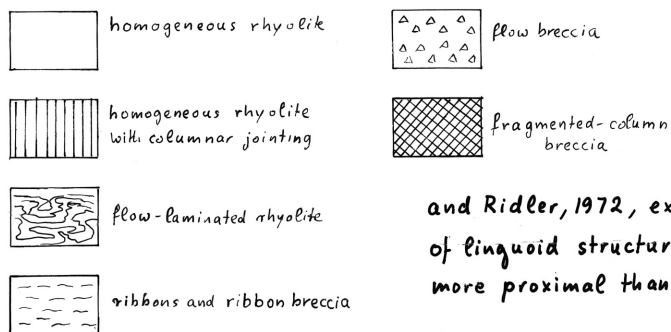 homogeneous rhyolite
homogeneous rhyolite
with columnar jointing
flow-laminated rhyolite
ribbons and ribbon breccia
flow breccia
fragmented-column
breccia
and Ridler, 1972, ex
of linguoid structur
more proximal than